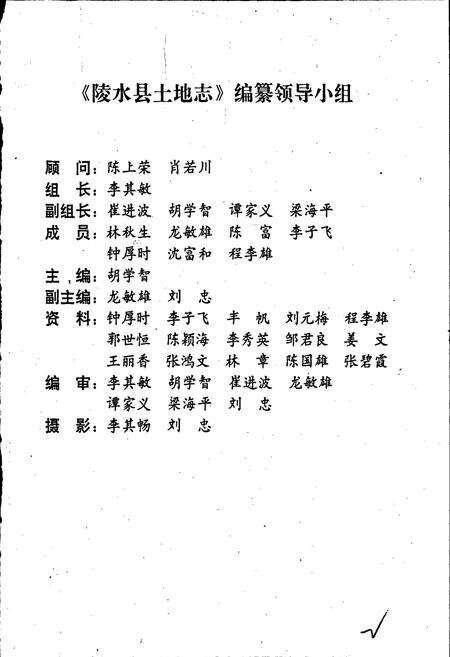 《陵水县土地志》编纂领导小组
顾 问：陈上荣 肖若川
组 长：李其敏
副组长：崔进波 胡学智 谭家义 梁海平
成 员：林秋生 龙敏雄 陈 富 李子飞
钟厚时 沈富和 程李雄
主 编：胡学智
副主编：龙敏雄 刘 忠
资 料：钟厚时 李子飞 丰 帆 刘元梅 程李雄
郭世恒 陈颖海 李秀英 邹君良 姜 文
王丽香 张鸿文 林 章 陈国雄 张碧霞
编 审：李其敏 胡学智 崔进波 龙敏雄
谭家义 梁海平 刘 忠
摄 影：李其畅 刘 忠